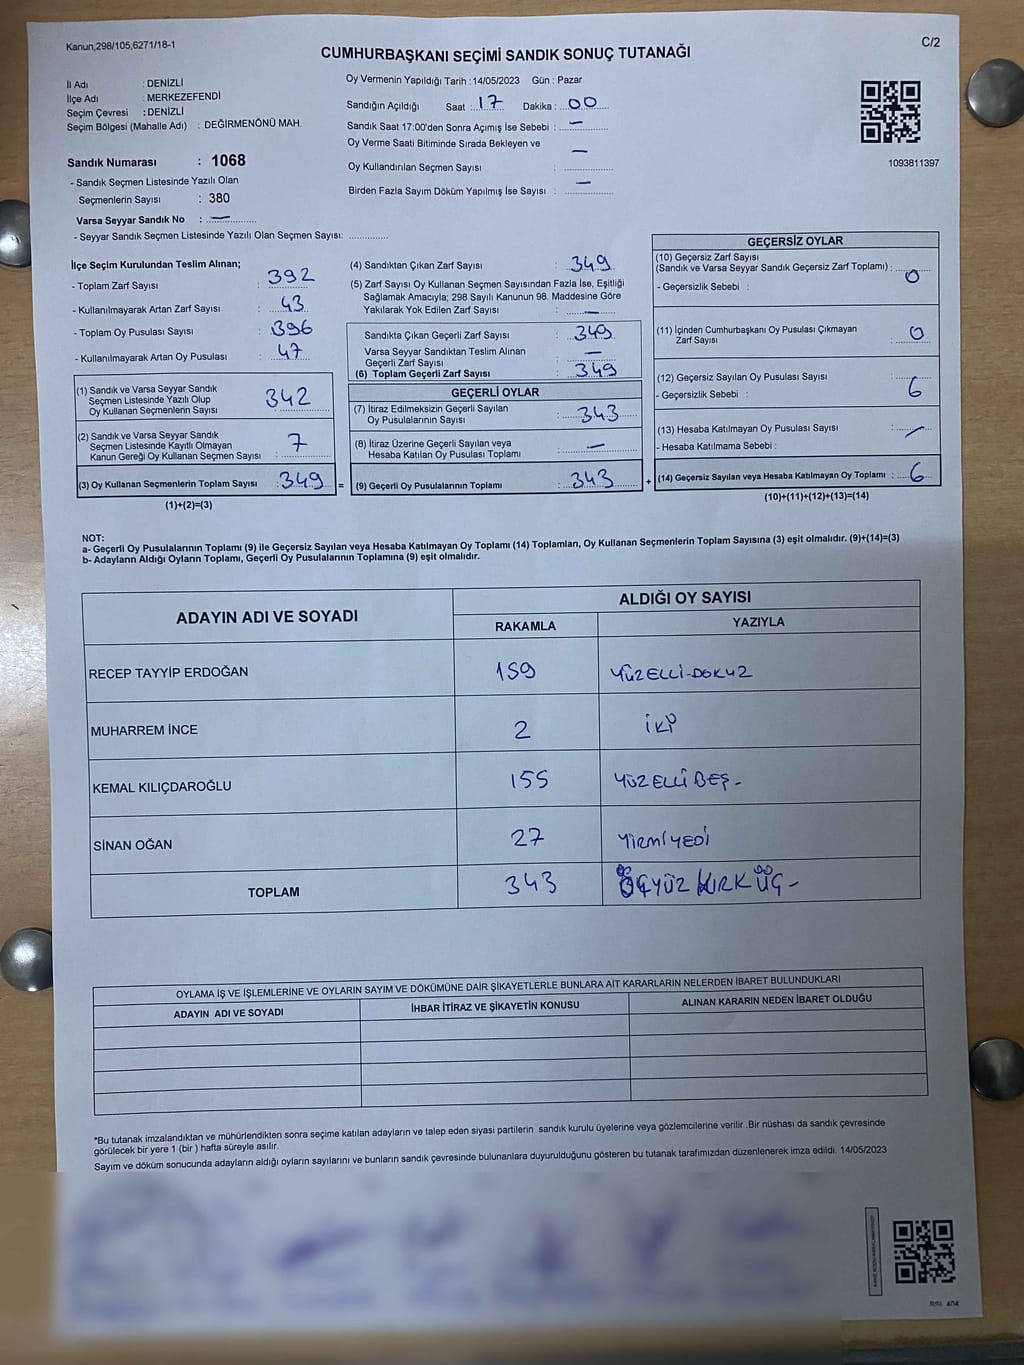 Kanun,298/105;6271/18-1
C/2
CUMHURBAŞKANI SEÇİMİ SANDIK SONUÇ TUTANAĞI
İl Adı : DENİZLİ
İlçe Adı : MERKEZEFENDİ
Seçim Çevresi : DENİZLİ
Seçim Bölgesi (Mahalle Adı) : DEĞİRMENÖNÜ MAH.
Sandık Numarası : 1068
- Sandık Seçmen Listesinde Yazılı Olan
Seçmenlerin Sayısı : 380
Varsa Seyyar Sandık No : —
- Seyyar Sandık Seçmen Listesinde Yazılı Olan Seçmen Sayısı: ..............
Oy Vermenin Yapıldığı Tarih : 14/05/2023 Gün : Pazar
Sandığın Açıldığı Saat : 17 Dakika : 00
Sandık Saat 17:00'den Sonra Açımış İse Sebebi : —
Oy Verme Saati Bitiminde Sırada Bekleyen ve —
Oy Kullandırılan Seçmen Sayısı :
Birden Fazla Sayım Döküm Yapılmış İse Sayısı : —
1093811397
İlçe Seçim Kurulundan Teslim Alınan;
- Toplam Zarf Sayısı : 392
- Kullanılmayarak Artan Zarf Sayısı : 43
- Toplam Oy Pusulası Sayısı : 396
- Kullanılmayarak Artan Oy Pusulası : 47
(1) Sandık ve Varsa Seyyar Sandık
Seçmen Listesinde Yazılı Olup
Oy Kullanan Seçmenlerin Sayısı : 342
(2) Sandık ve Varsa Seyyar Sandık
Seçmen Listesinde Kayıtlı Olmayan
Kanun Gereği Oy Kullanan Seçmen Sayısı : 7
(3) Oy Kullanan Seçmenlerin Toplam Sayısı : 349 =
(1)+(2)=(3)
(4) Sandıktan Çıkan Zarf Sayısı : 349
(5) Zarf Sayısı Oy Kullanan Seçmen Sayısından Fazla İse, Eşitliği
Sağlamak Amacıyla; 298 Sayılı Kanunun 98. Maddesine Göre
Yakılarak Yok Edilen Zarf Sayısı : —
Sandıkta Çıkan Geçerli Zarf Sayısı : 349
Varsa Seyyar Sandıktan Teslim Alınan
Geçerli Zarf Sayısı : —
(6) Toplam Geçerli Zarf Sayısı : 349
GEÇERLİ OYLAR
(7) İtiraz Edilmeksizin Geçerli Sayılan
Oy Pusulalarının Sayısı : 343
(8) İtiraz Üzerine Geçerli Sayılan veya
Hesaba Katılan Oy Pusulası Toplamı : —
(9) Geçerli Oy Pusulalarının Toplamı : 343 +
GEÇERSİZ OYLAR
(10) Geçersiz Zarf Sayısı
(Sandık ve Varsa Seyyar Sandık Geçersiz Zarf Toplamı) : 0
- Geçersizlik Sebebi :
(11) İçinden Cumhurbaşkanı Oy Pusulası Çıkmayan
Zarf Sayısı : 0
(12) Geçersiz Sayılan Oy Pusulası Sayısı : 6
- Geçersizlik Sebebi :
(13) Hesaba Katılmayan Oy Pusulası Sayısı : —
- Hesaba Katılmama Sebebi :
(14) Geçersiz Sayılan veya Hesaba Katılmayan Oy Toplamı : 6
(10)+(11)+(12)+(13)=(14)
NOT:
a- Geçerli Oy Pusulalarının Toplamı (9) ile Geçersiz Sayılan veya Hesaba Katılmayan Oy Toplamı (14) Toplamları, Oy Kullanan Seçmenlerin Toplam Sayısına (3) eşit olmalıdır. (9)+(14)=(3)
b- Adayların Aldığı Oyların Toplamı, Geçerli Oy Pusulalarının Toplamına (9) eşit olmalıdır.
ADAYIN ADI VE SOYADI
ALDIĞI OY SAYISI
RAKAMLA YAZIYLA
RECEP TAYYİP ERDOĞAN 159 YÜZELLİ-DOKUZ
MUHARREM İNCE 2 İKİ
KEMAL KILIÇDAROĞLU 155 YÜZELLİ BEŞ-
SİNAN OĞAN 27 YİRMİYEDİ
TOPLAM 343 ÜÇYÜZ KIRK ÜÇ-
OYLAMA İŞ VE İŞLEMLERİNE VE OYLARIN SAYIM VE DÖKÜMÜNE DAİR ŞİKAYETLERLE BUNLARA AİT KARARLARIN NELERDEN İBARET BULUNDUKLARI
ADAYIN ADI VE SOYADI İHBAR İTİRAZ VE ŞİKAYETİN KONUSU ALINAN KARARIN NEDEN İBARET OLDUĞU
*Bu tutanak imzalandıktan ve mühürlendikten sonra seçime katılan adayların ve talep eden siyasi partilerin sandık kurulu üyelerine veya gözlemcilerine verilir .Bir nüshası da sandık çevresinde
görülecek bir yere 1 (bir ) hafta süreyle asılır.
Sayım ve döküm sonucunda adayların aldığı oyların sayılarını ve bunların sandık çevresinde bulunanlara duyurulduğunu gösteren bu tutanak tarafımızdan düzenlenerek imza edildi. 14/05/2023